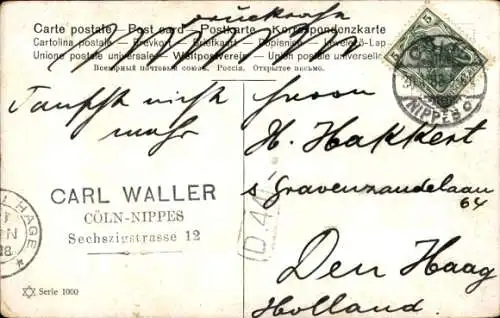 Carte postale – Post card – Postkarte – Korrespondenzkarte
Cartolina postale – Brevkort – Briefkaart – Dopisnice – Levelező-Lap
Unione postale universale – Weltpostverein – Union postale universelle
Всемірный почтовый союз. Россія. Открытое письмо.
Tauscht nicht
mehr
CARL WALLER
CÖLN-NIPPES
Sechszigstrasse 12
Serie 1000
HAGE
5
5
NIPPES
Herrn
H. Hakkert
s'Gravenzandelaan
64
D 44
Den Haag
Holland.